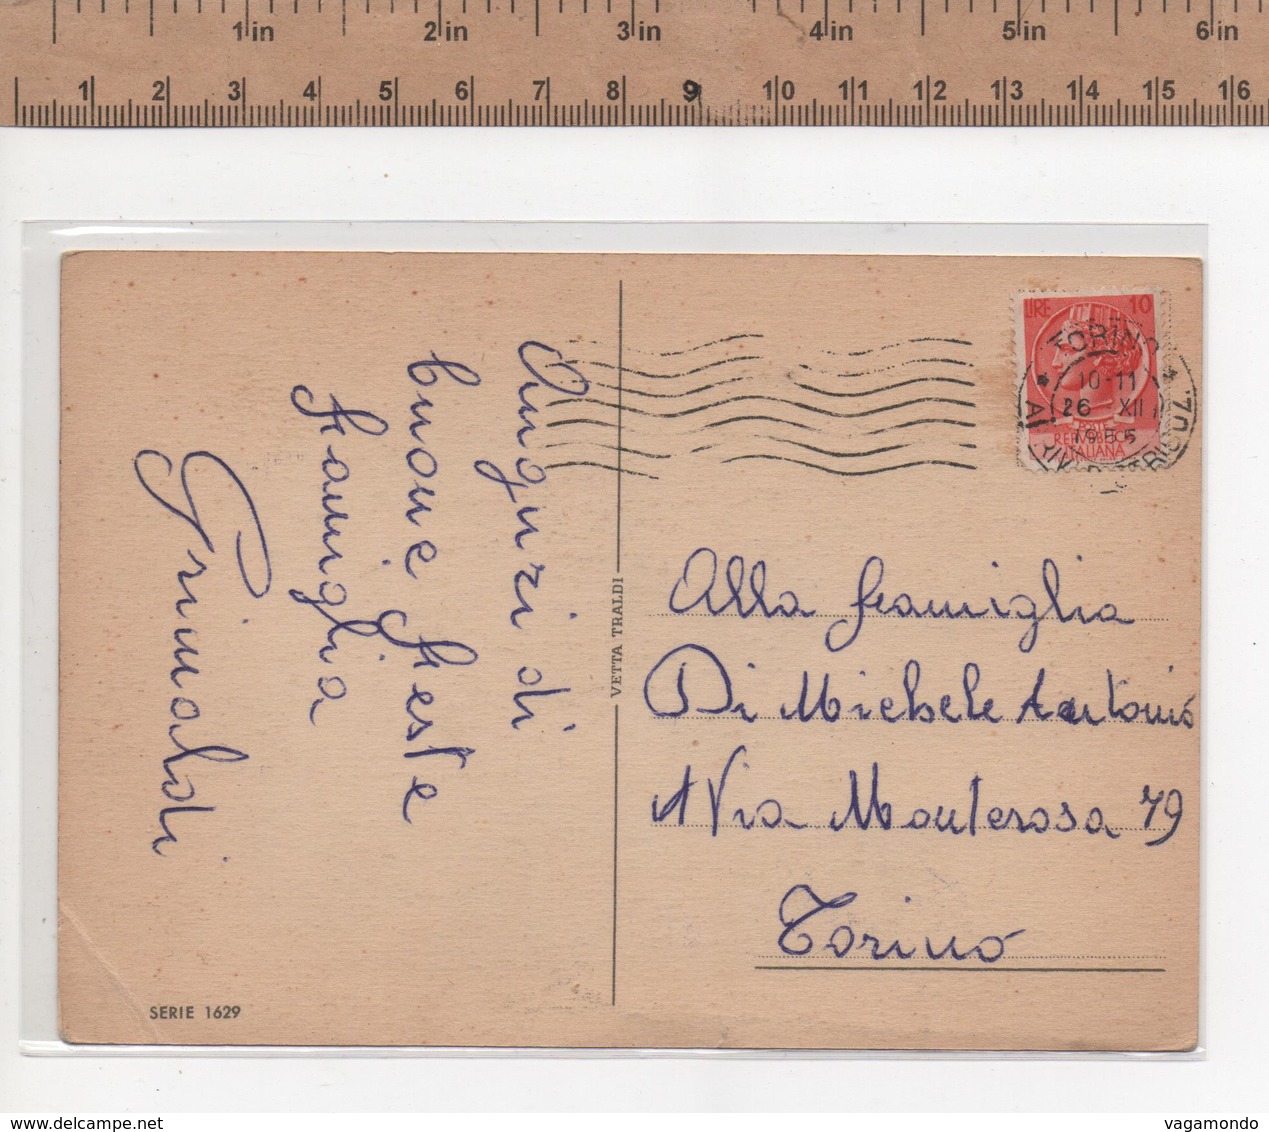 1in 2in 3in 4in 5in 6in
1 2 3 4 5 6 7 8 9 10 11 12 13 14 15 16
LIRE 10
POSTE
REPUBBLICA
ITALIANA
TORINO
10-11
26 XII
1955
Auguri di
buone feste
Famiglia
Grimaldi
VETTA TRALDI
Alla famiglia
Di Michele Antonio
Via Monterosa 79
Torino
SERIE 1629
www.delcampe.net
vagamondo